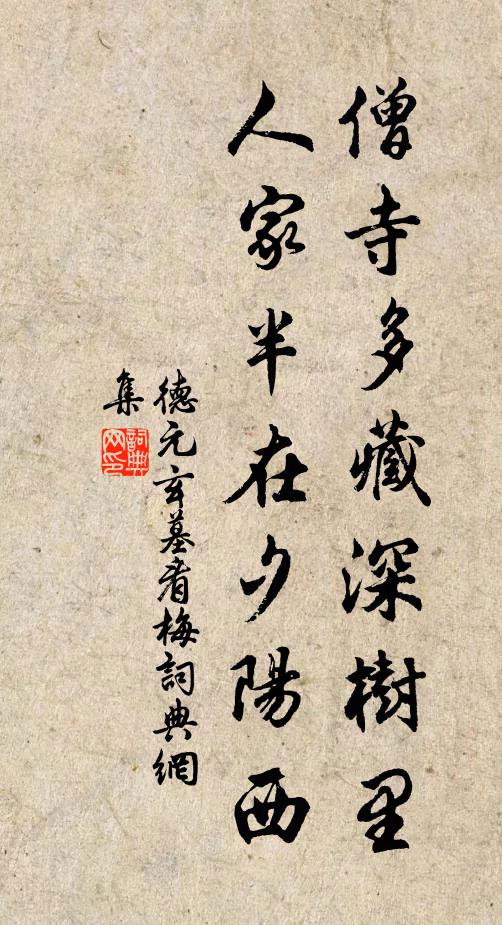 僧寺多藏深樹里
人家半在夕陽西
德元玄墓看梅詞典網
集
詞典
网印